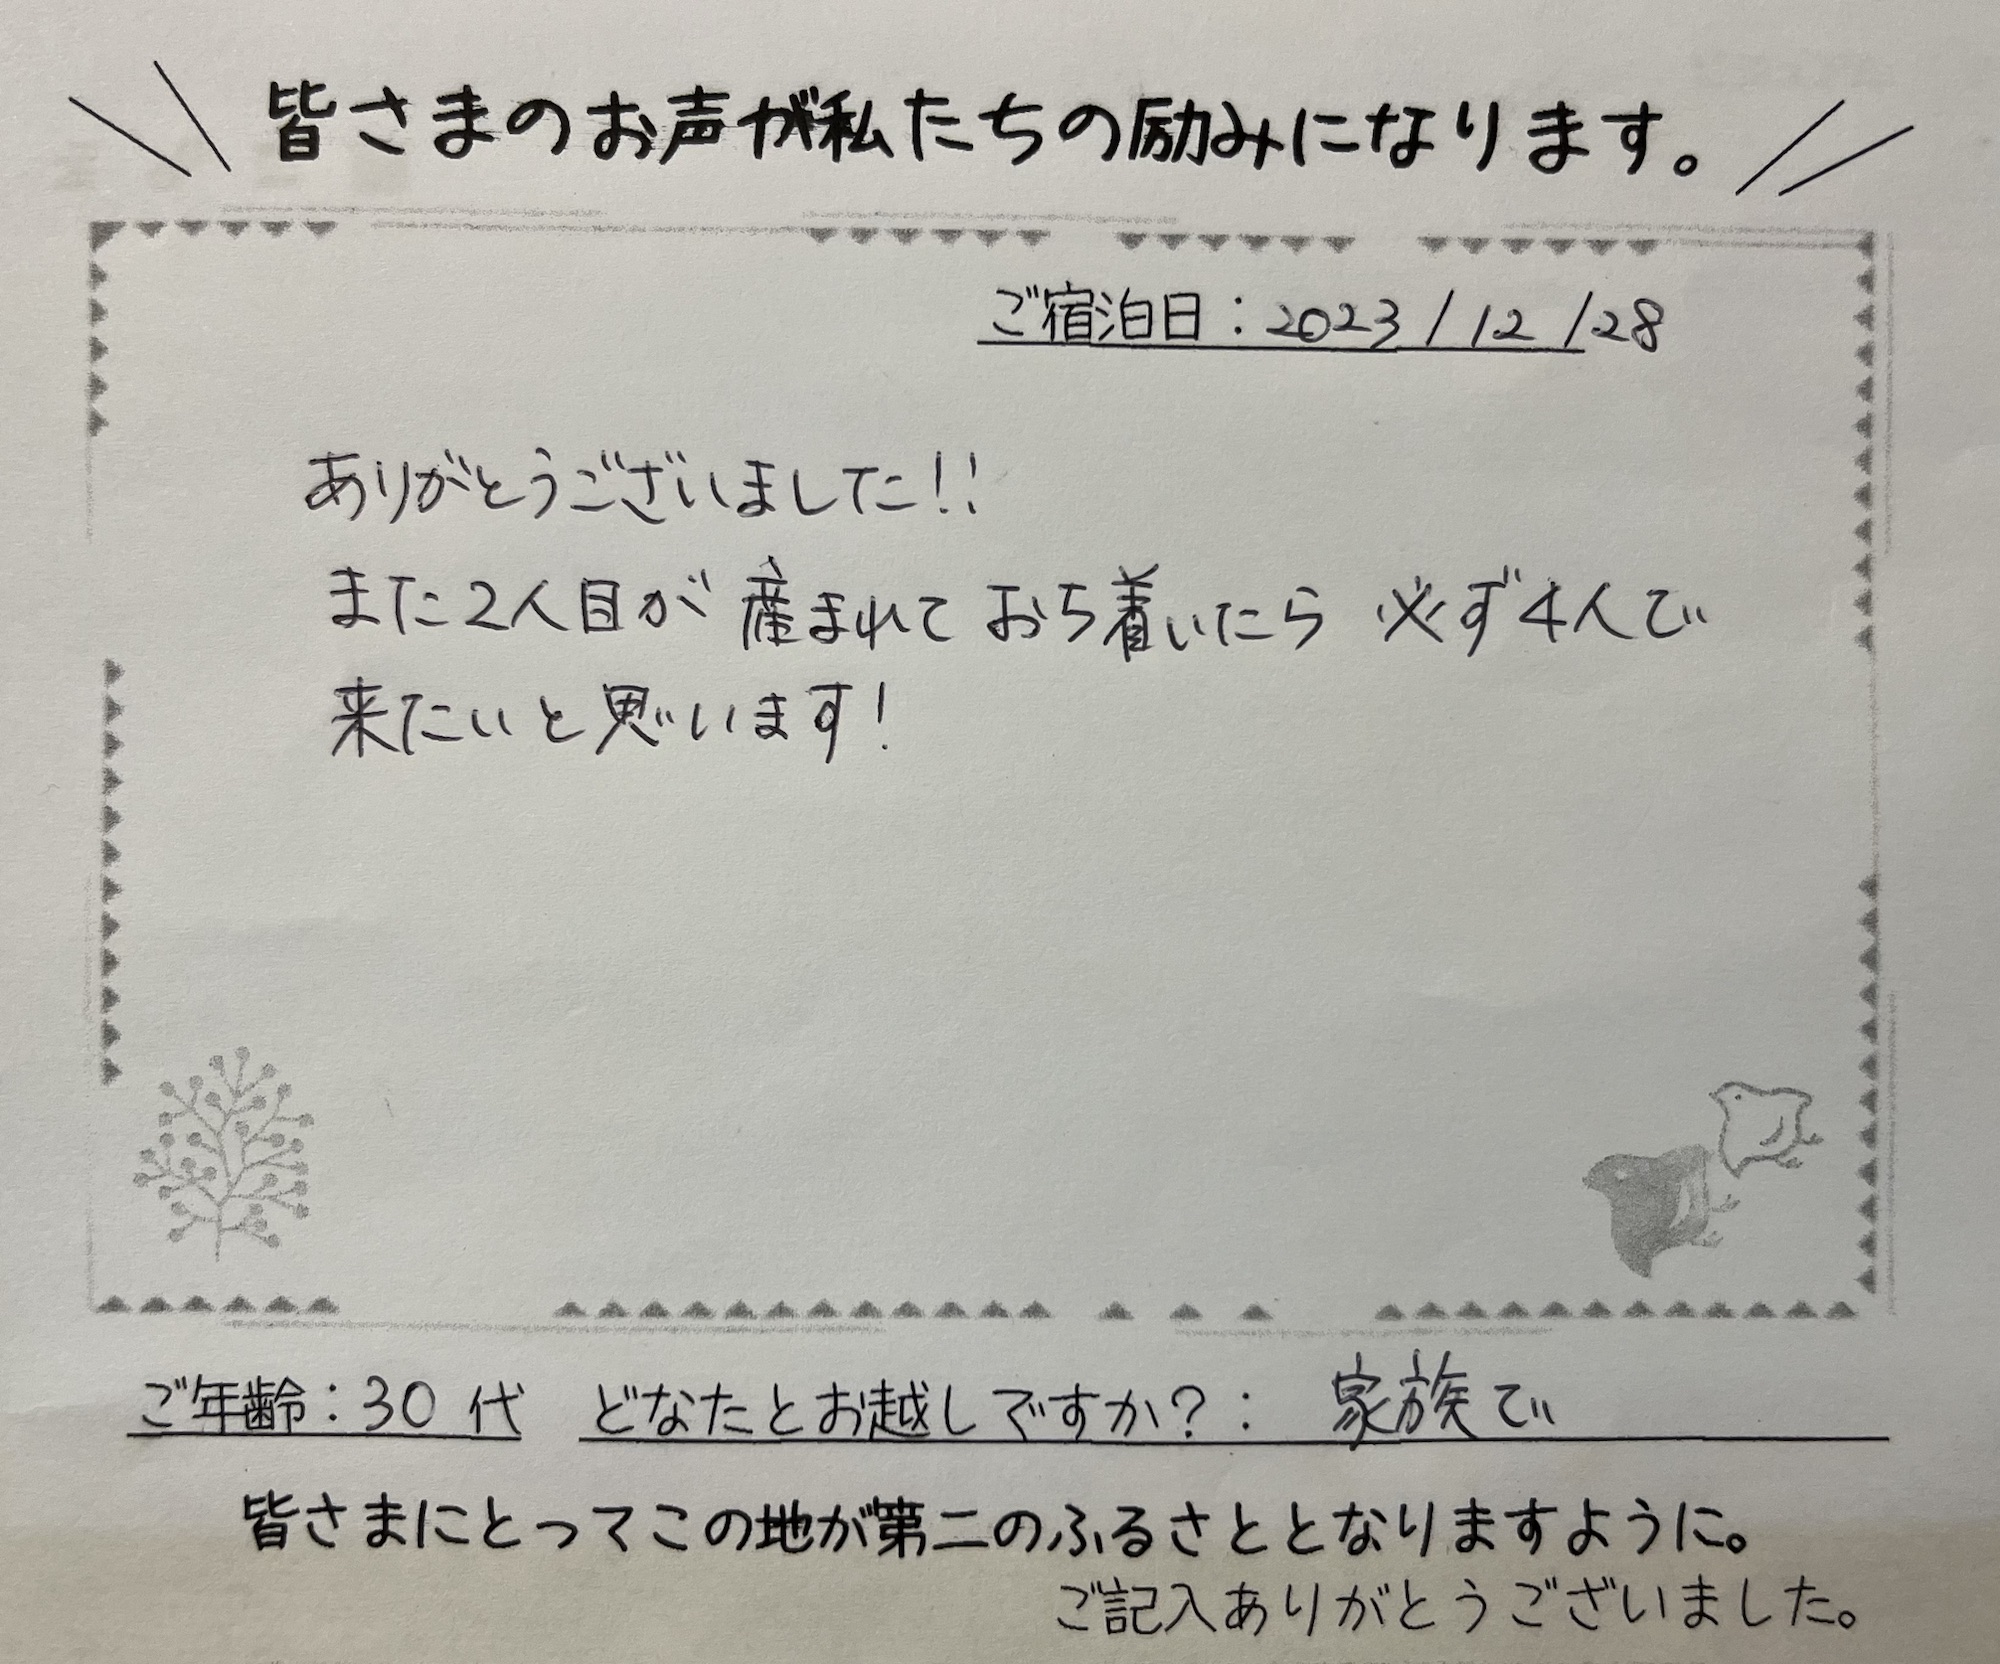 皆さまのお声が私たちの励みになります。
ご宿泊日：2023/12/28
ありがとうございました!!
また2人目が産まれておち着いたら必ず4人で
来たいと思います!
ご年齢：30代 どなたとお越しですか？： 家族で
皆さまにとってこの地が第二のふるさととなりますように。
ご記入ありがとうございました。